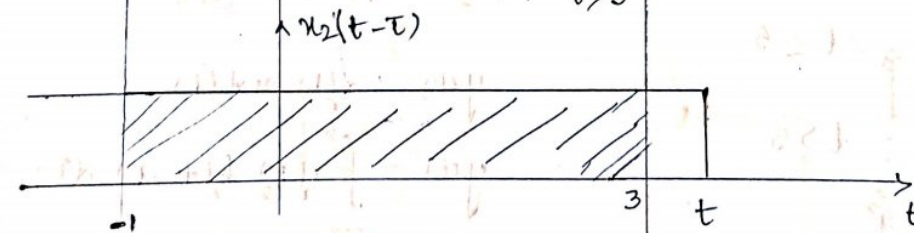 x₂(t-τ)
-1
3
t
t